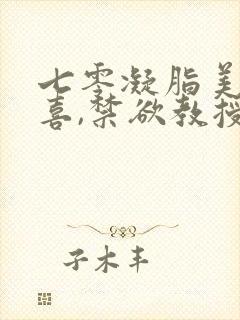 七零凝脂美
喜,禁欲教授
子木丰